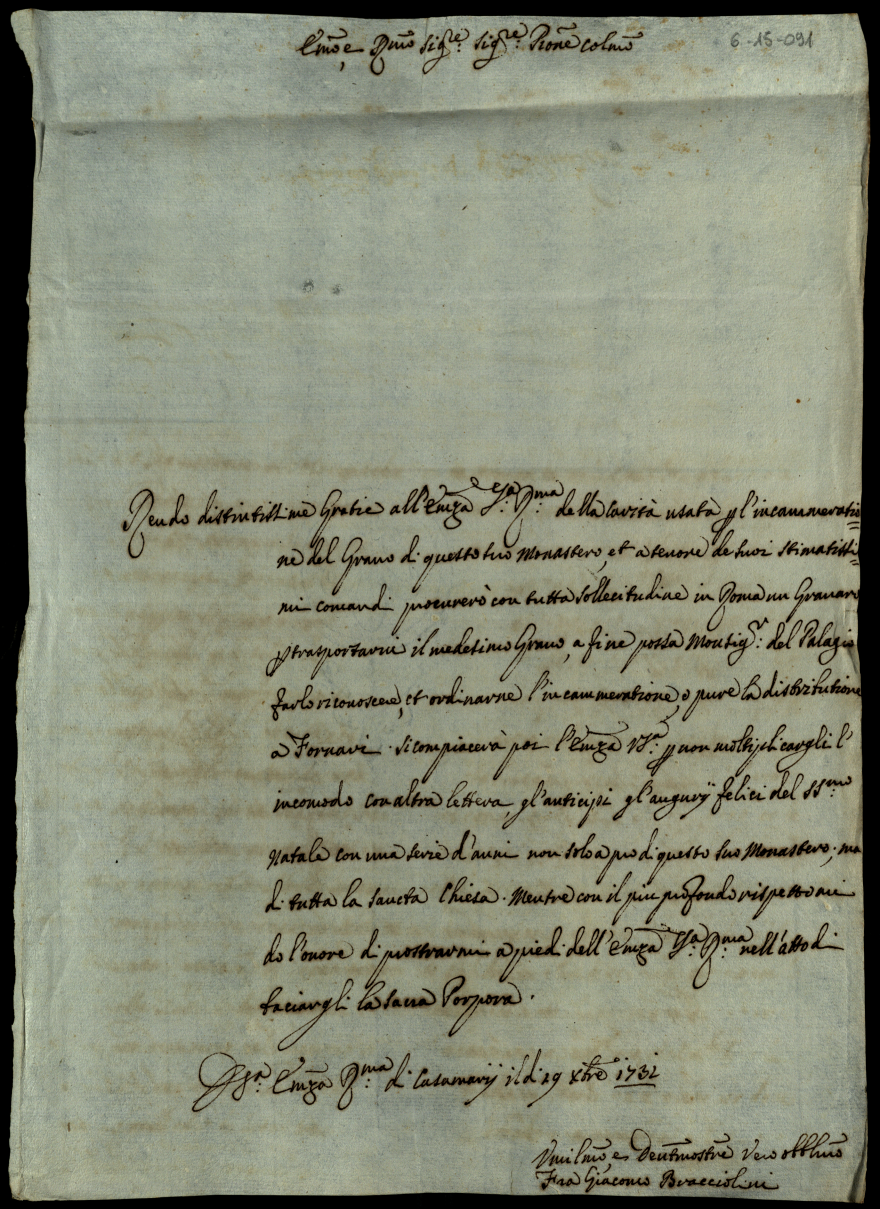 Em̃o, e Rmõ Sigre: Sigre: Pr̃one Colmõ
6-15-091
Rendo distintissime Gratie all'Emza Vra: Rma: della Carità usata p l'incammeratio=
ne del Grano di questo suo Monastero, et a tenore de suoi stimatissi=
mi comandi procurerò con tutta sollecitudine in Roma un Granaro
p trasportarvi il medesimo Grano, a fine possa Monsigr: del Palagio
farlo riconoscere, et ordinarne l'incammeratione, o pure la distributione
a Fornari. Si compiacerà poi l'Emza Vra: p non moltiplicargli l'
incomodo con altra lettera, gl'anticipi gl'augurij felici del SSmo:
Natale con una serie d'anni non solo a pro di questo suo Monastero, ma
di tutta la Sancta Chiesa. Mentre con il piu profondo rispetto mi
do l'onore di prostrarmi a piedi dell'Emza Vra: Rma: nell'atto di
baciargli la Sacra Porpora.
Vra: Emza Rma: di Casamarij il di 19 Xbre 1731
Umilmõ, e Deṽtmo Servre Vero obblmõ
Fra Giacomo Bracciolini